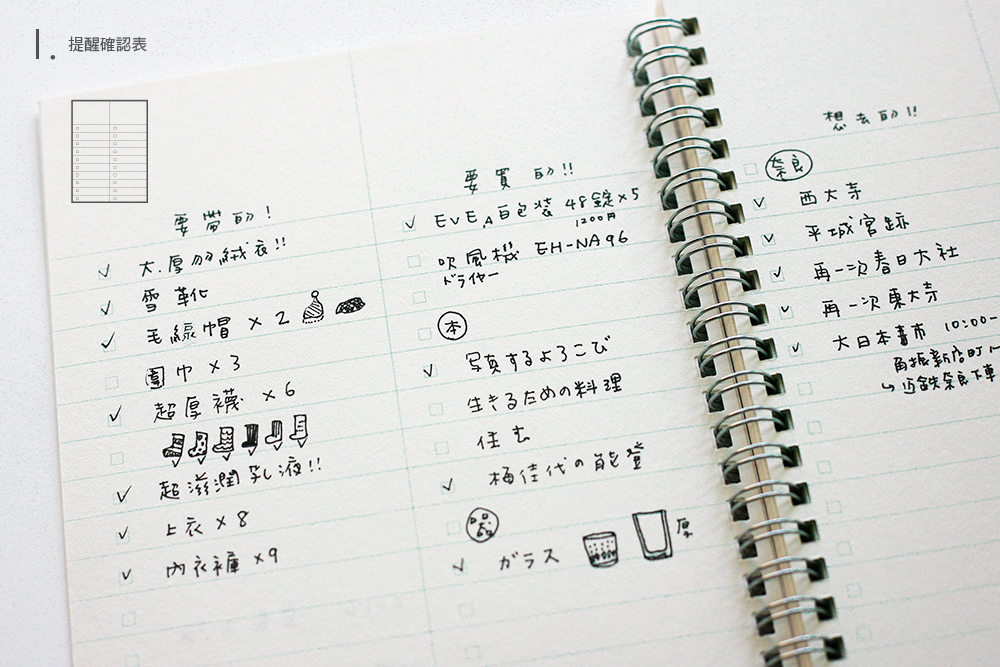 提醒確認表
要帶的!
大.厚羽絨衣!!
雪靴
毛線帽 ×2
圍巾 ×3
超厚襪 ×6
超滋潤乳液!!
上衣 ×8
內衣褲 ×9
要買的!!
EVE A 白包裝 48錠×5
1200円
吹風機 EH-NA96
ドライヤー
本
写真するよろこび
生きるための料理
住む
桶佳代の能登
器
ガラス
厚
想去的!!
奈良
西大寺
平城宮跡
再一次春日大社
再一次東大寺
大日本書市 10:00-
角振新店町
↳ 近鉄奈良下車